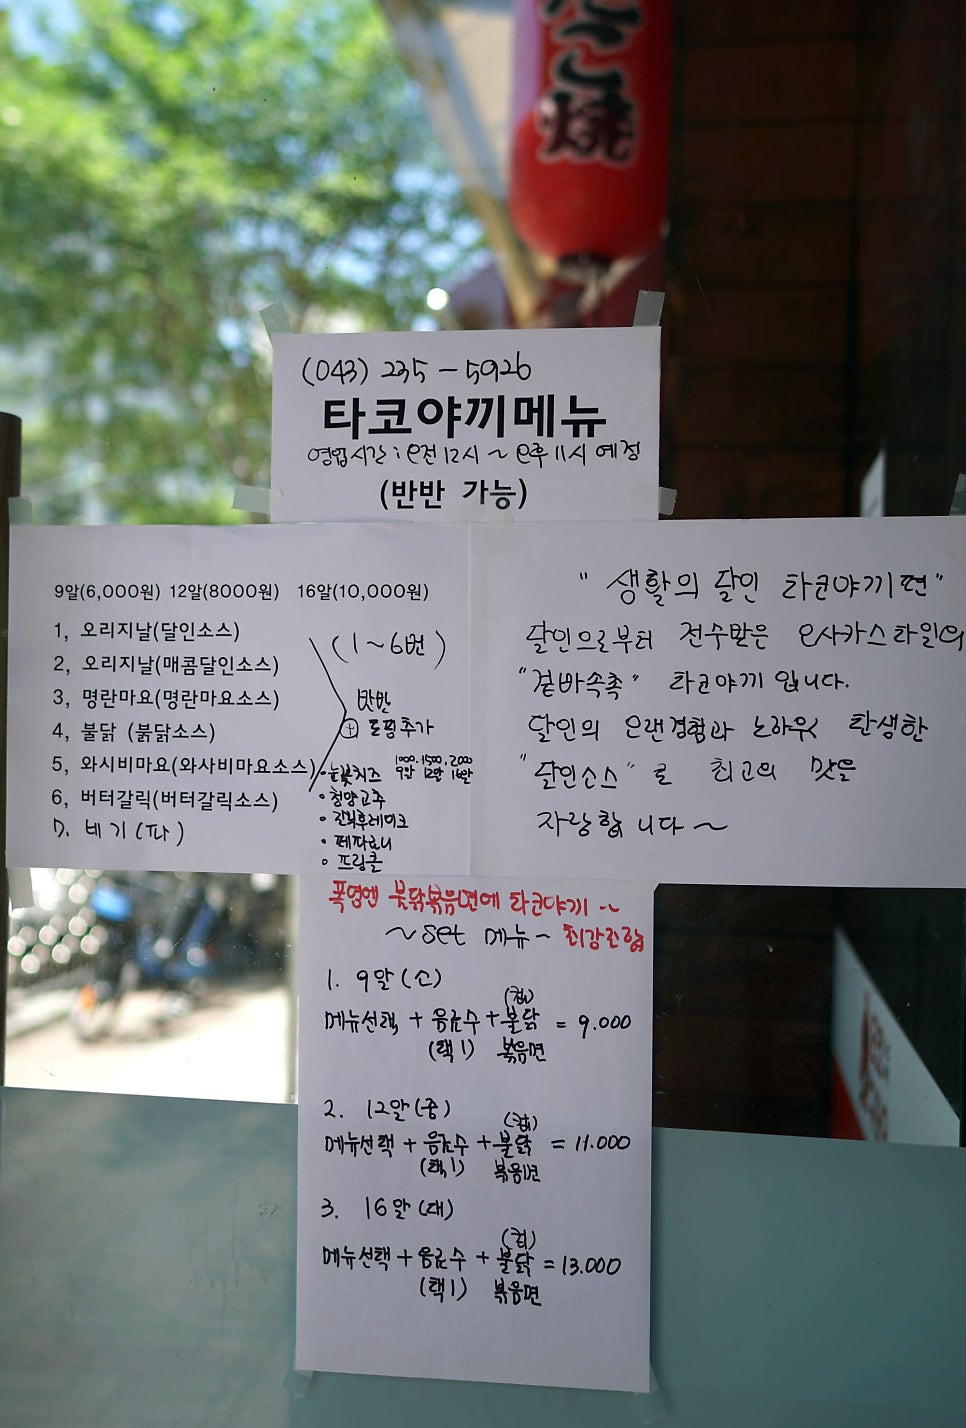 こ焼
(043) 235-5926
타코야끼메뉴
영업시간 : 오전 12시 ~ 오후 11시 예정
(반반 가능)
9알(6,000원) 12알(8000원) 16알(10,000원)
1, 오리지날(달인소스)
2, 오리지날(매콤달인소스)
3, 명란마요(명란마요소스)
4, 불닭 (붉닭소스)
5, 와시비마요(와사비마요소스)
6, 버터갈릭(버터갈릭소스)
7. 네기(파)
(1~6번)
반반
+ 토핑추가
•눈꽃치즈 1000. 1500. 2000
9알 12알 16알
•청양고추
•진미후레이크
•페파로니
•프링클
" 생활의 달인 타코야끼편 "
달인으로부터 전수받은 오사카스타일의
"겉바속촉" 타코야끼 입니다.
달인의 오랜경험과 노하우로 탄생한
"달인소스"로 최고의 맛을
자랑합니다~
폭염엔 불닭볶음면에 타코야끼~
~set 메뉴~ 최강조합
1. 9알(소)
(컵)
메뉴선택 + 음료수 + 불닭 = 9.000
(택1) 볶음면
2. 12알(중)
(컵)
메뉴선택 + 음료수 + 불닭 = 11.000
(택1) 볶음면
3. 16알(대)
(컵)
메뉴선택 + 음료수 + 불닭 = 13.000
(택1) 볶음면